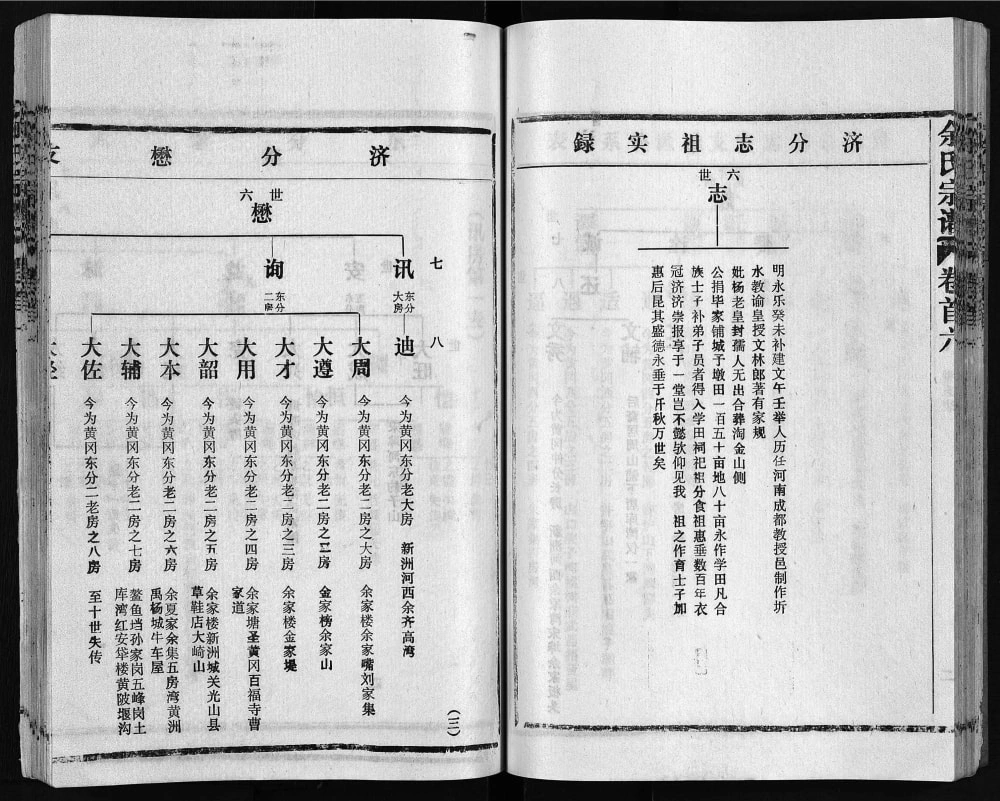 余氏宗谱 卷首六
济分志祖实录
六世
志
明永乐癸未补建文午壬举人历任河南成都教授邑制作圻
水教谕皇授文林郎著有家规
妣杨老皇封孺人无出合葬淘金山侧
公捐毕家铺城于墩田一百五十亩地八十亩永作学田凡合
族士子补弟子员者得入学田祠祀祖分食祖惠垂数百年衣
冠济济崇报享于一堂岂不懿欤仰见我 祖之作育士子加
惠后昆其盛德永垂于千秋万世矣
济分懋
六世
懋
七
讯 东分大房
询 东分二房
八
迪 今为黄冈东分老大房 新洲河西余齐高湾
大周 今为黄冈东分老二房之大房 余家楼余家嘴刘家集
大遵 今为黄冈东分老二房之二房 金家榜余家山
大才 今为黄冈东分老二房之三房 余家楼金家堤
大用 今为黄冈东分老二房之四房 余家塘圣黄冈百福寺曹
家道
大韶 今为黄冈东分老二房之五房 余家楼新洲城关光山县
草鞋店大崎山
大本 今为黄冈东分老二房之六房 余夏家余集五房湾黄洲
禹杨城牛车屋
大辅 今为黄冈东分老二房之七房 鳌鱼垱孙家岗五峰岗土
库湾红安垏楼黄陂堰沟
大佐 今为黄冈东分二老房之八房 至十世失传
(三)